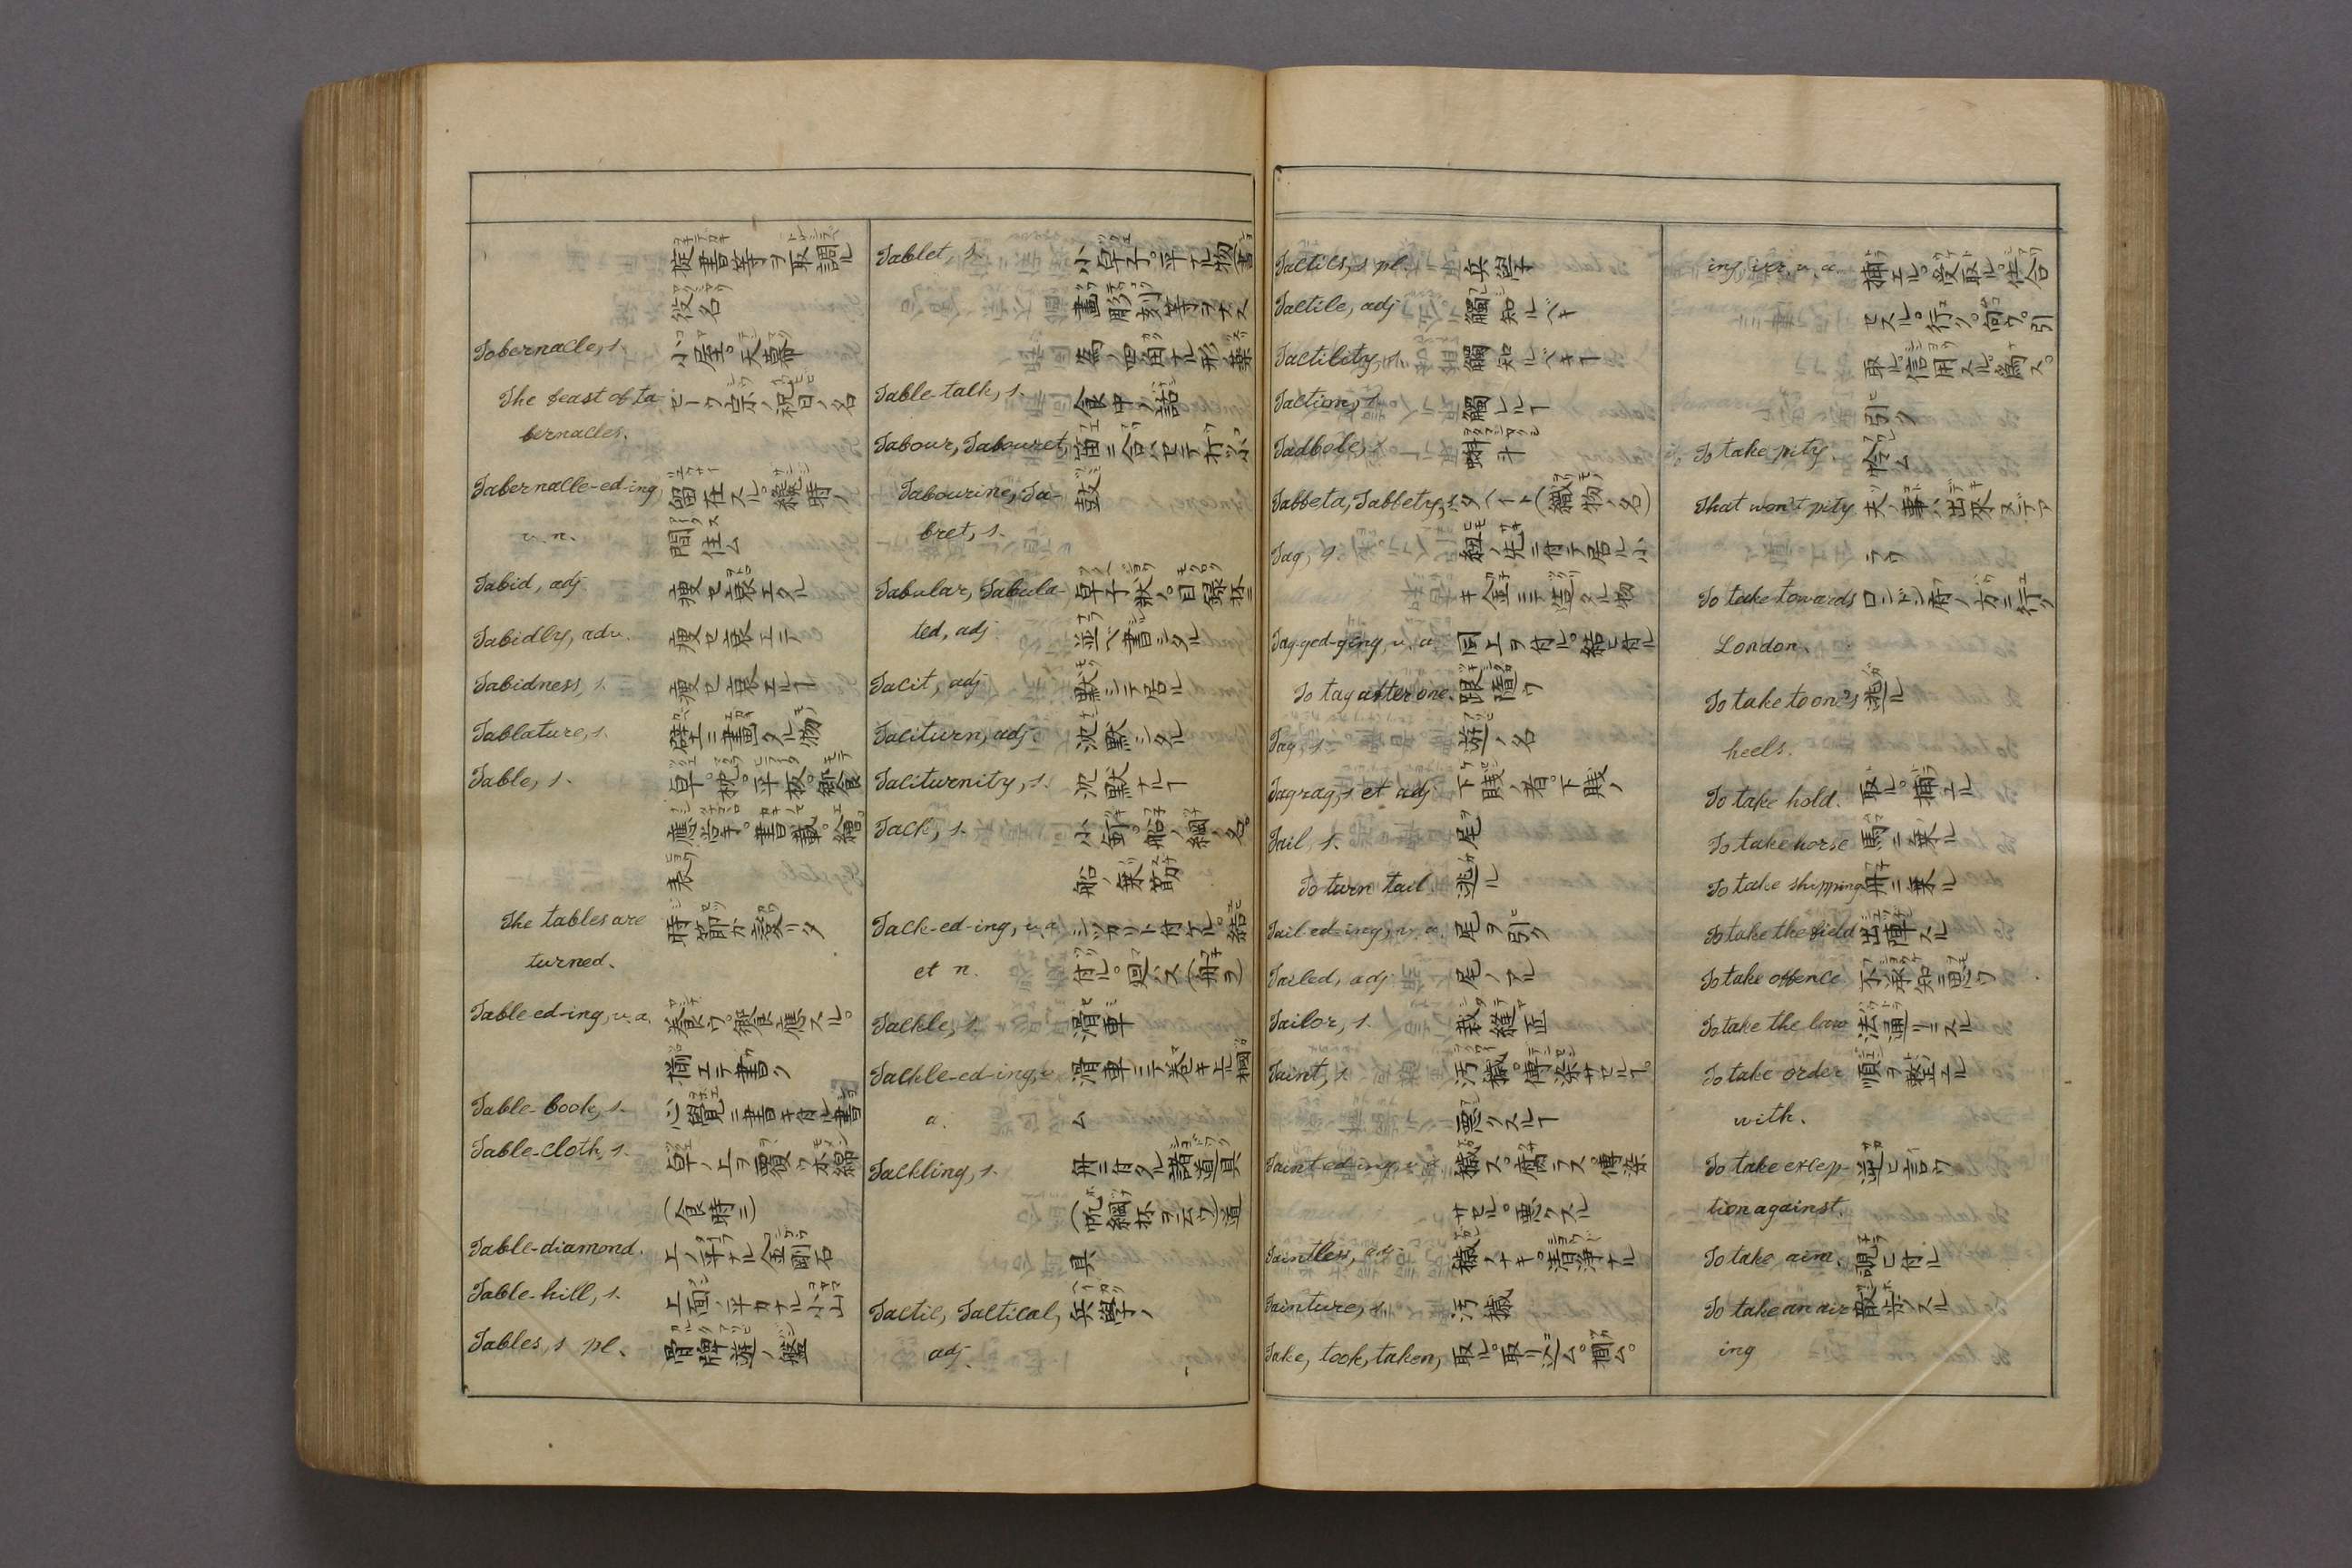 掟書等ヲ取調ル
役名
Tobernacle, s. 小屋。天幕
The feast of ta- 祝日ノ名
bernacles.
Tabernacle-ed-ing, 留在スル。纔時ノ
v. n. 間住ム
Tabid, adj 痩セ衰エタル
Tabidly, adv. 痩セ衰エテ
Tabidness, s. 痩セ衰エルヿ
Tablature, s. 壁ニ畫タル物
Table, s. 卓。枕。平板。饗食
應。掌。書載。繪。
表
The tables are 時節ガ變リタ
turned.
Table-ed-ing, v. a. 養食ウ。饗食應スル。
揃エテ書ク
Table-book, s. 心覺ニ書キ付ル書
Table-cloth, s. 卓ノ上ヲ覆ウ木綿
(食時ニ)
Table-diamond. 上ノ平ナル金剛石
Table-hill, s. 上面ノ平カナル小山
Tables, s pl. 骨牌遊ノ盤
Tablet, s. 小卓子。平ナル物(書
畫彫刻等ヲナス
為ノ四角ナル形ノ藥
Table-talk, s. 食中ノ話
Tabour, Tabouret, 笛ニ合ハセテ打ツ小
Tabourine, Ta- 鼓
bret, s.
Tabular, Tabula- 卓子狀ノ。目録抔ニ
ted, adj 並ベ書シタル
Tacit, adj 默シテ居ル
Taciturn, adj. 沈默シタル
Taciturnity, s. 沈默ナルヿ
Tack, s. 小釘。船ノ綱ノ名。
船ノ乗筋
Tack-ed-ing, v. a シツカリト付ケル。結
et n. 付ル。廻ハス(舟ヲ)
Tackle, s. 滑車
Tackle-ed-ing, v. 滑車ニテ巻キ上ル掴
a. ム
Tackling, s. 舟ニ付タル諸道具
(帆綱抔ヲ云ウ)道
具
Tactic, Tactical, 兵學ノ
adj.
Tactics, s pl. 兵學
Tactile, adj 觸知ルベキ
Tactility, s. 觸知ルベキヿ
Taction, s. 觸ルルヿ
Tadbole, s 蝌斗
Tabbeta, Tabbety, s タヘート(織物ノ名)
Tag, s. 紐ノ先ニ付テ居ル小
キ金ニテ造タル物
Tag-ged-ging, v. a 同上ヲ付ル。結ビ付ル
To tag after one. 跟隨ウ
Tag, s. 遊ノ名
Tagrag, s et adj 下賤ノ者。下賤ノ
Tail, s. 尾
To turn tail. 逃ル
Tail-ed-ing, v. a. 尾ヲ引ク
Tailed, adj 尾ノアル
Tailor, s. 裁縫匠
Taint, s. 汚穢。傳染サセルヿ。
悪クスルヿ
Taint-ed-ing, v. a 穢ス。腐ラス。傳染
サセル。悪クスル
Taintless, adj. 穢ノナキ。清浄ナル
Tainture, s. 汚穢
Take, took, taken, 取ル。取リ込ム。掴ム。
ing, v. a. 捕エル。受取ル。仕合
セスル。行ク。向ウ。引
取ル。信用スル。為ス。
引ク
To take pity. 憐ム
That won't pity 夫ノ事ハ出來ヌデア
ラウ
To take towards ロンドン府ノ方ニ行ク
London.
To take to one's 逃ル
heels.
To take hold. 取ル。捕エル
To take horse 馬ニ乗ル
To take shipping 舟ニ乗ル
To take the field 出陣スル
To take offence 不承知ニ思ウ
To take the law 法通リニスル
To take order 順ヲ整エル
with.
To take excep- 逆ヒ言ウ
tion against.
To take aim. 覘ヒ付ル
To take an air- 散歩スル
ing